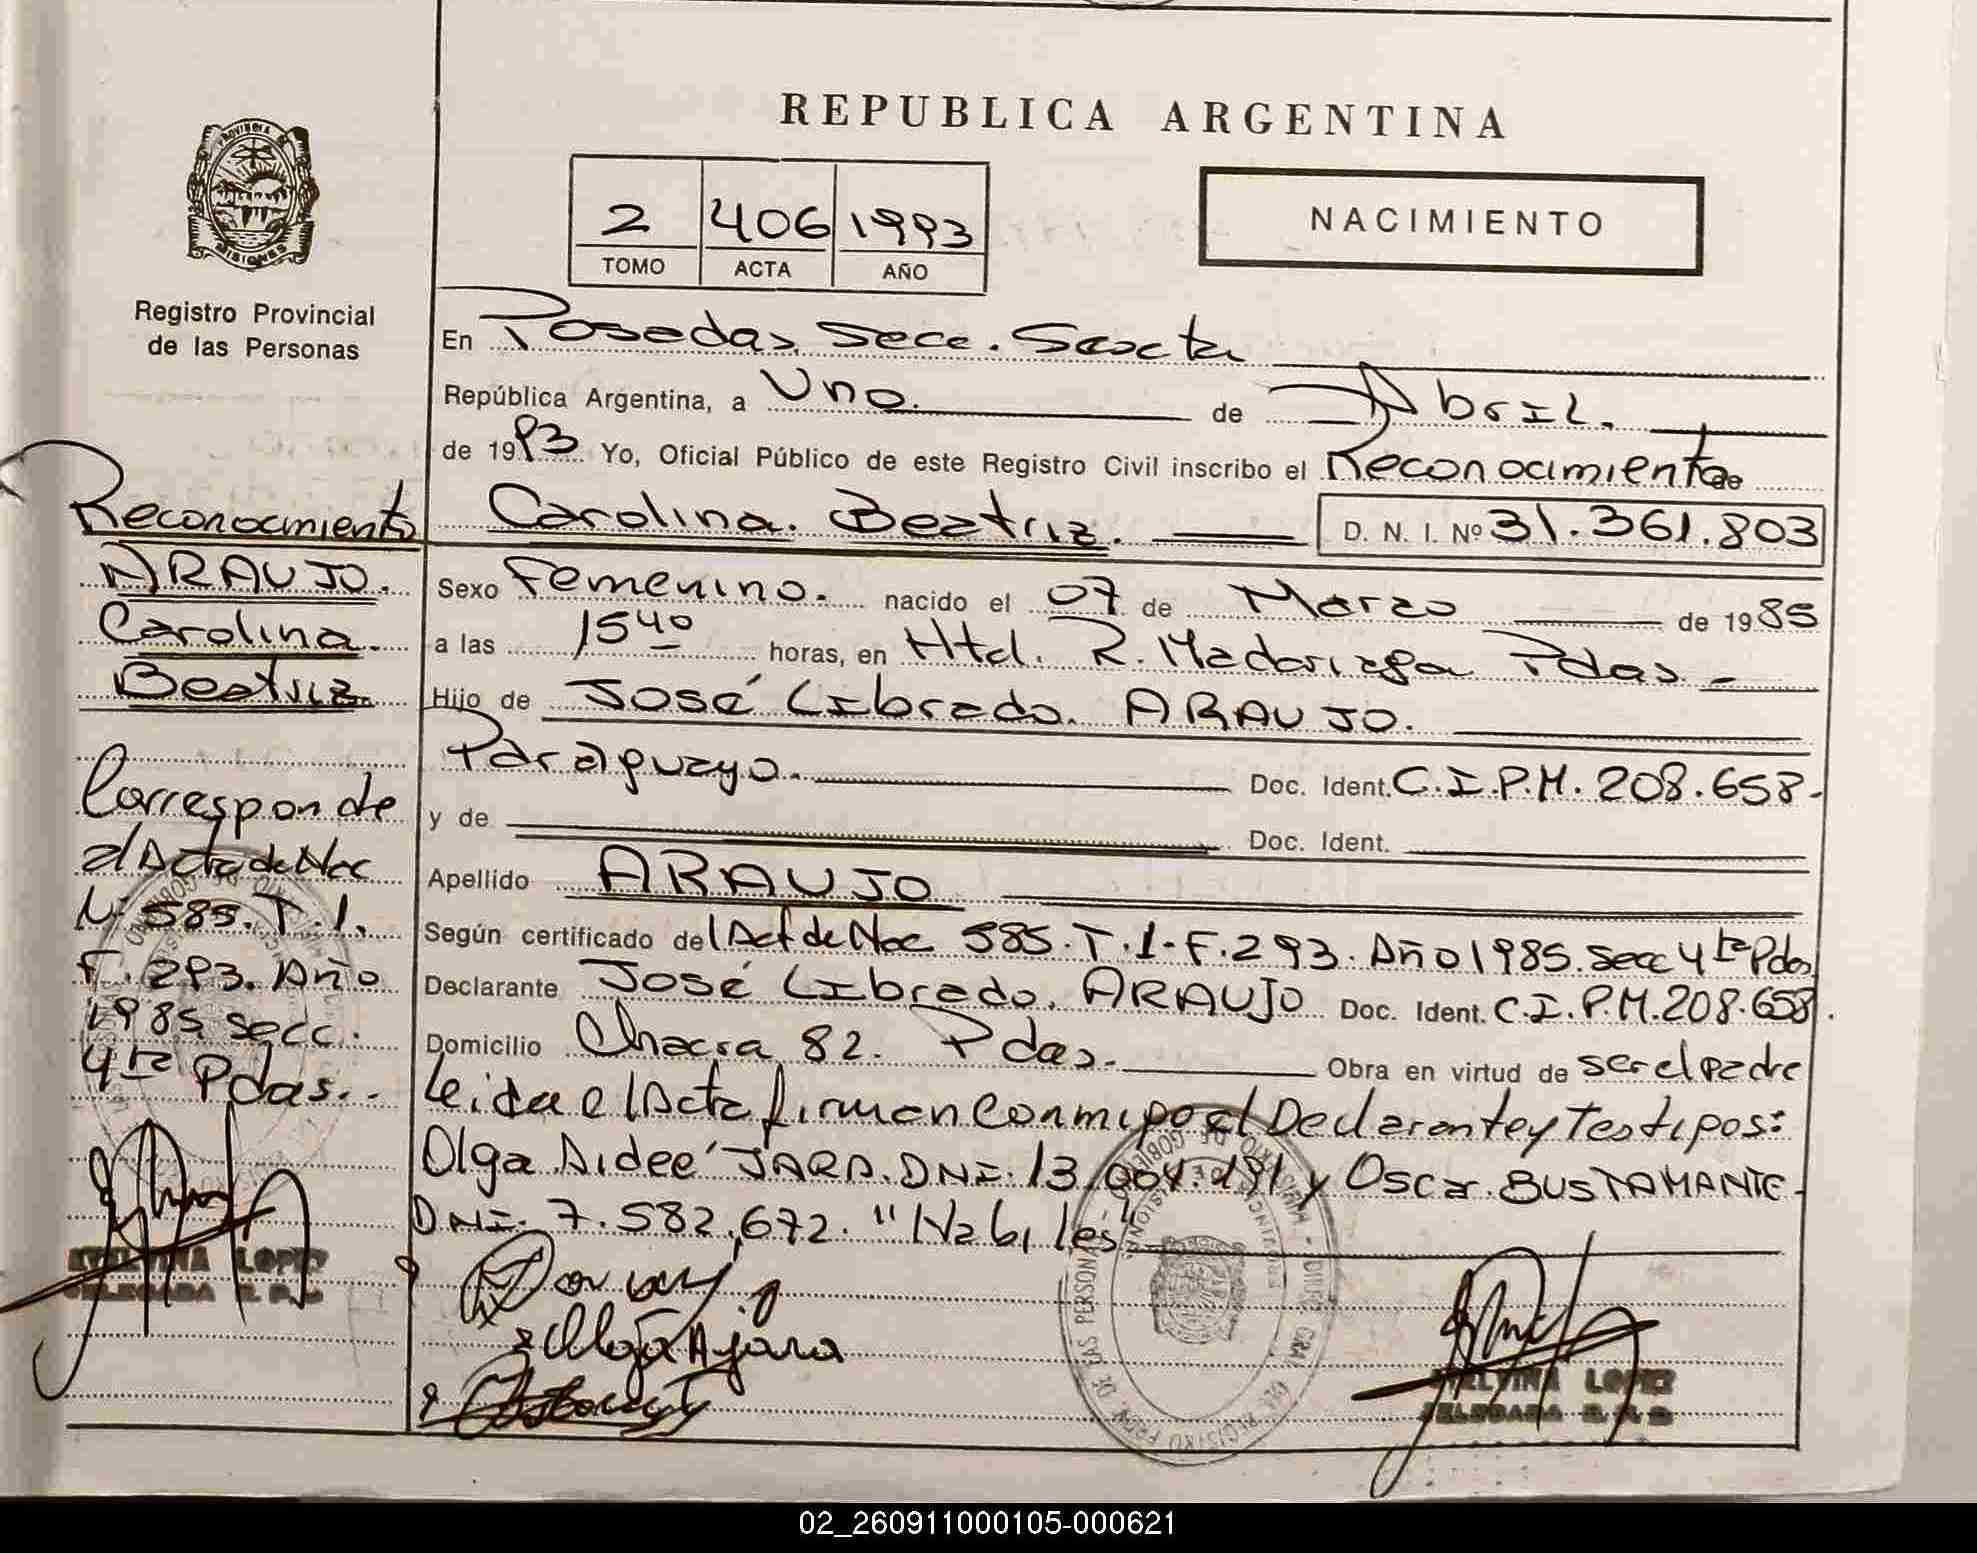 REPUBLICA ARGENTINA
PROVINCIA DE MISIONES
Registro Provincial
de las Personas
2 406 1993
TOMO ACTA AÑO
NACIMIENTO
En Posadas, Secc. Sexta
República Argentina, a Uno. de Abril.
de 1993 Yo, Oficial Público de este Registro Civil inscribo el Reconocimiento de
Carolina. Beatriz. D. N. I. Nº 31.361.803
Sexo Femenino. nacido el 07 de Marzo de 1985
a las 15 40 horas, en Htal. R. Madariaga Pdas. -
Hijo de José Librado. ARAUJO.
Paraguayo. Doc. Ident. C.I.P.M. 208.658.
y de Doc. Ident.
Apellido ARAUJO
Según certificado del Act de Nac 585. T. 1 - F. 293. Año 1985. Secc 4ta Pdas
Declarante José Librado. ARAUJO Doc. Ident. C.I.P.M. 208.658.
Domicilio Chacra 82. Pdas. Obra en virtud de ser el padre
Leida el Acta firman Conmigo el Declarante y Testigos:
Olga Aidee JARA. DNI. 13.004.191 y Oscar. BUSTAMANTE.
DNI. 7.582.672. "Habiles"
Olga A jara
ETELVINA LOPEZ
DELEGADA R. P. P.
Reconocimiento
ARAUJO.
Carolina.
Beatriz.
Corresponde
al Acta de Nac
Nº 585. T. 1.
F. 293. Año
1985. secc.
4ta Pdas..
ETELVINA LOPEZ
DELEGADA R. P. P.
02_260911000105-000621